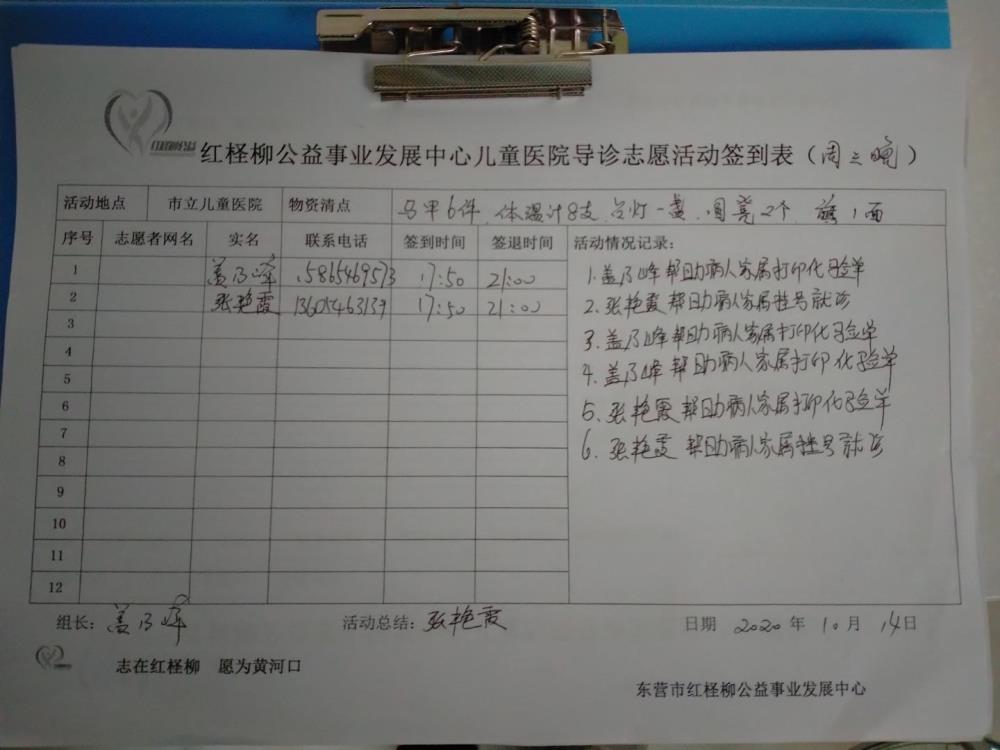 红柽柳公益
红柽柳公益事业发展中心儿童医院导诊志愿活动签到表（周三晚）
活动地点 市立儿童医院 物资清点 马甲6件 体温计8支 台灯一盏 圆凳2个 旗1面
序号 志愿者网名 实名 联系电话 签到时间 签退时间 活动情况记录：
1 盖乃峰 15865469573 17:50 21:00
2 张艳霞 17:50 21:00
3
4
5
6
7
8
9
10
11
12
1.盖乃峰帮助病人家属打印化验单
2.张艳霞帮助病人家属挂号就诊
3.盖乃峰帮助病人家属打印化验单
4.盖乃峰帮助病人家属打印化验单
5.张艳霞帮助病人家属打印化验单
6.张艳霞帮助病人家属挂号就诊
组长：盖乃峰 活动总结：张艳霞 日期 2020年10月14日
志在红柽柳 愿为黄河口
东营市红柽柳公益事业发展中心